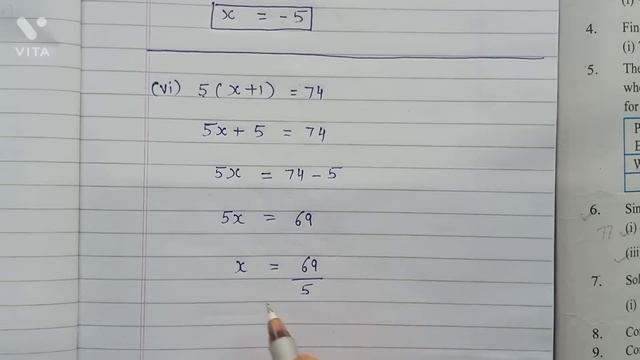 x = -5
VITA
(vi) 5(x+1) = 74
5x + 5 = 74
5x = 74 - 5
5x = 69
x = 69/5
4. Fin
(i)
5. The
whe
for
P
E
W
6. Sin
77 (i)
(iii
7. Sol
(i)
8. Co
9. Co